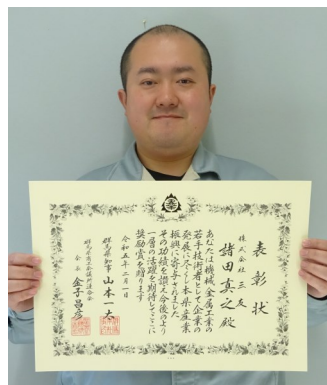 表彰状
株式会社 三友
諸田真之殿
あなたは機械金属工業の
若手技術者として企業の
発展に尽くし本県産業
振興に寄与されました
その功績を讃え今後のより
一層の活躍を期待してここに
奨励賞を贈ります
令和五年二月一日
群馬県知事 山本一太
群馬県商工会議所連合会
会長 金子昌彦